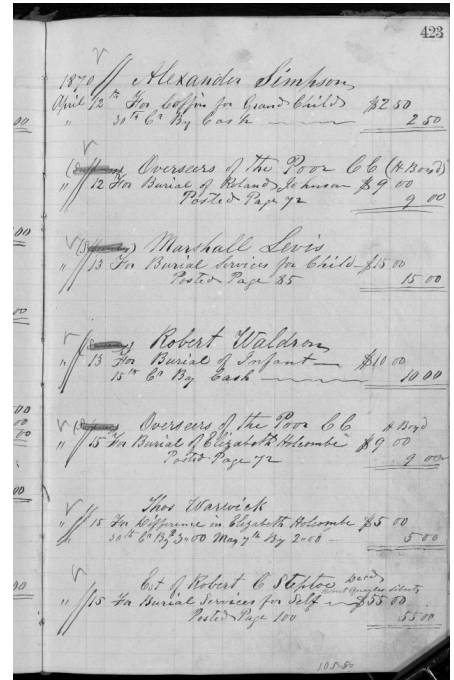 423
1870 Alexander Simpson
April 12th For Coffin for Grand Child $2 50
" 30th Cr By Cash 2 50
Overseers of the Poor CC (A Boyd)
" 12 For Burial of Roland Johnson $9 00
Posted Page 72 9 00
Marshall Levis
" 13 For Burial Services for Child $15 00
Posted Page 85 15 00
Robert Waldron
" 13 For Burial of Infant $10 00
15th Cr By Cash 10 00
Overseers of the Poor CC A Boyd
" 15 For Burial of Elizabeth Holcombe $9 00
Posted Page 72 9 00
Thos Warwick
" 15 For Difference in Elizabeth Holcombe $5 00
30th Cr By 3.00 May 7th By 2.00 5 00
Est of Robert C Steptoe Decd
" 15 For Burial Services for Self $55 00
Posted Page 100 55 00
105.50